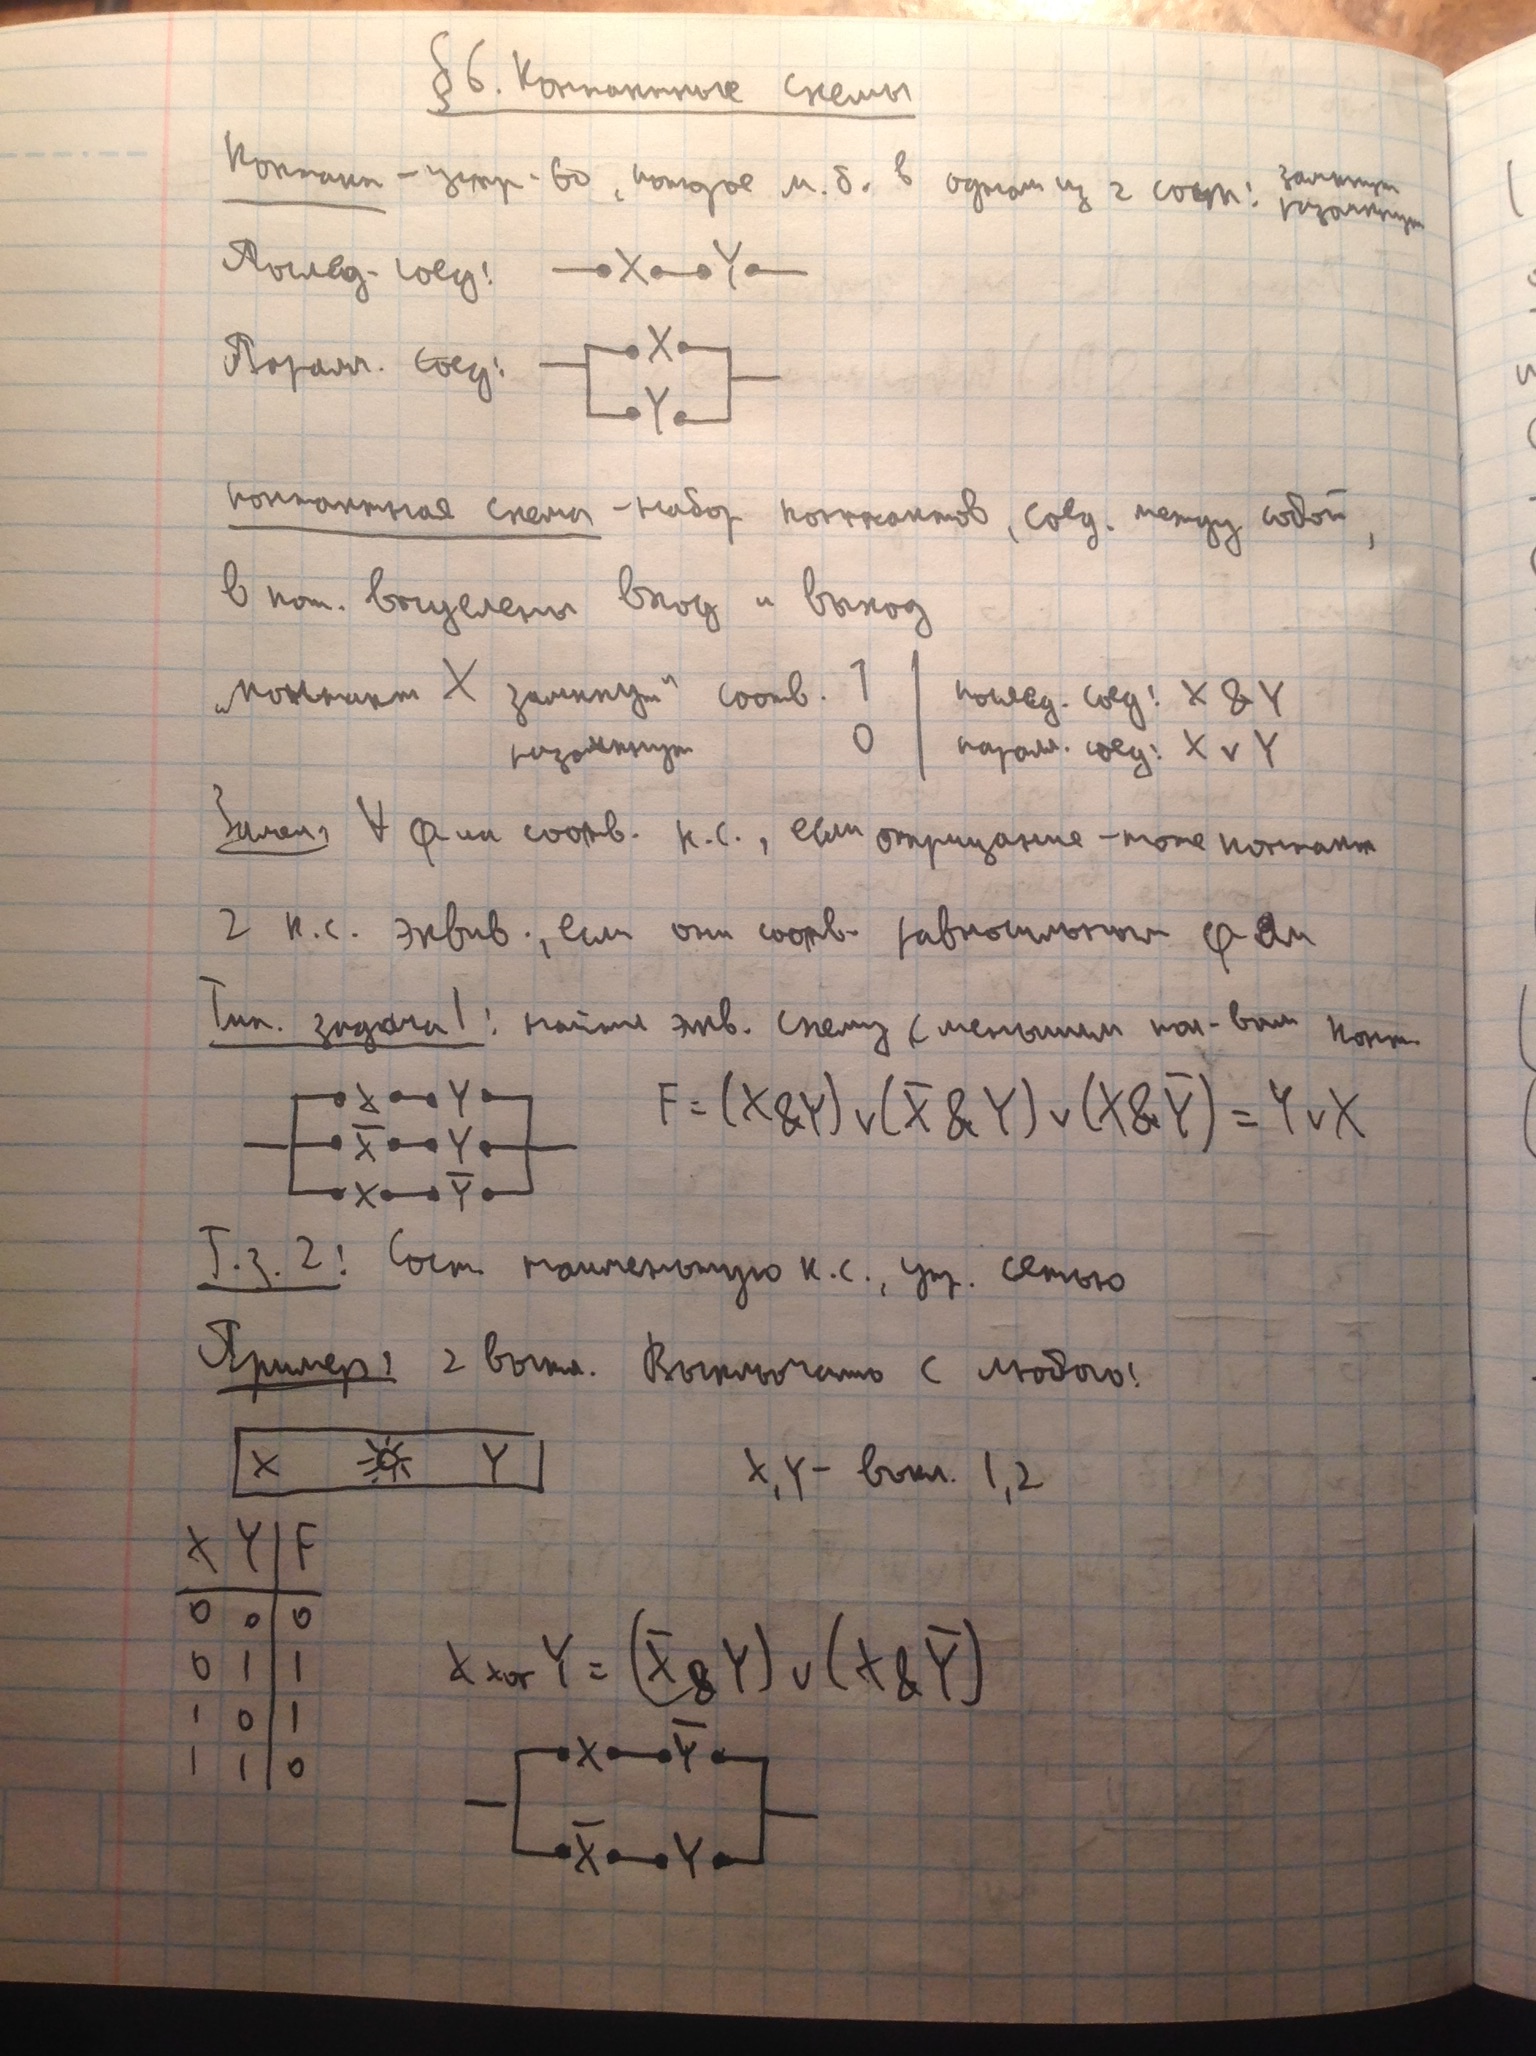 §6. Контактные схемы
Контакт – устр-во, которое м.б. в одном из 2 сост: замкнут
разомкнут
Послед. соед: X Y
Паралл. соед: X
Y
Контактная схема – набор контактов, соед. между собой,
в кот. выделены вход и выход
„контакт X замкнут" соотв. 1 | послед. соед: X & Y
разомкнут 0 | паралл. соед: X v Y
Замеч: ∀ ф-ии соотв. к.с., если отрицание – тоже контакт
2 к.с. эквив., если они соотв. равносильным ф-ям
Тип. задача 1: найти экв. схему с меньшим кол-вом конт.
X Y
X̅ Y
X Y̅
F = (X&Y) v (X̅ & Y) v (X & Y̅) = Y v X
Т.з. 2: Сост. наименьшую к.с., упр. сетью
Пример: 2 выкл. Выключать с любого!
X Y
X, Y – выкл. 1, 2
X Y | F
0 0 | 0
0 1 | 1
1 0 | 1
1 1 | 0
X xor Y = (X̅ & Y) v (X & Y̅)
X Y̅
X̅ Y